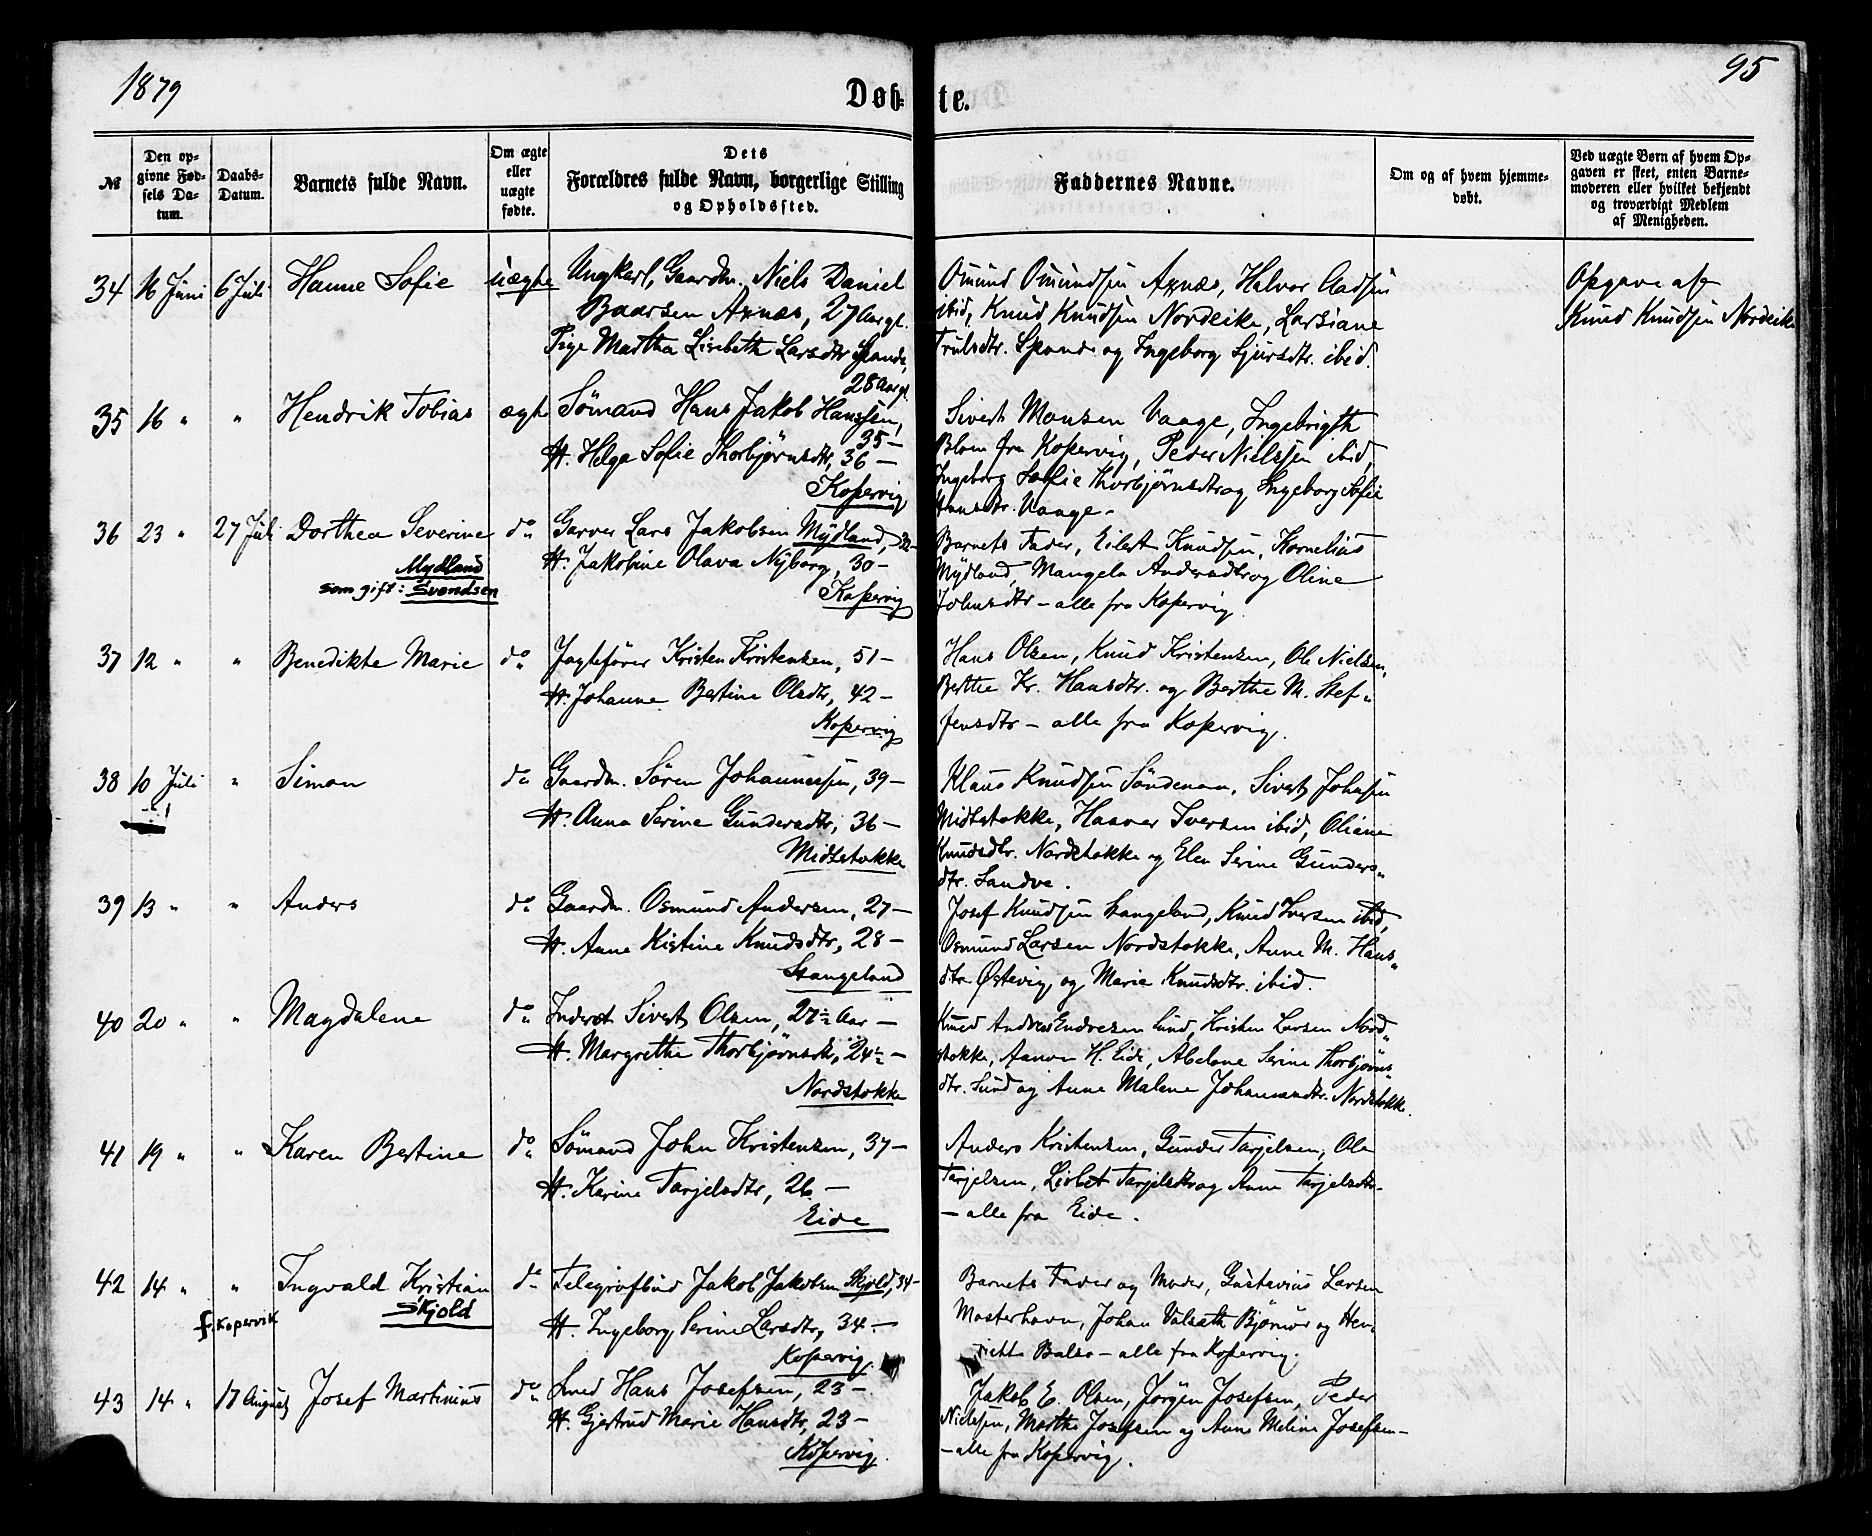 1879
Døb-
te.
95
№
Den op-
givne Fød-
sels Da-
tum.
Daabs-
Datum.
Barnets fulde Navn.
Om ægte
eller
uægte
fødte.
Dets
Forældres fulde Navn, borgerlige Stilling
og Opholdssted.
Faddernes Navne.
Om og af hvem hjemme-
døbt.
Ved uægte Børn af hvem Op-
gaven er skeet, enten Barne-
moderen eller hvilket bekjendt
og troværdigt Medlem
af Menigheden.
34 16 Juni 6 Juli Hanne Sofie uægte Ungkarl, Gaardm. Niels Daniel
Baarsen Axnæs, 27 Aar gl.
Pige Martha Lisebeth Larsdtr Spande,
28 Aar gl.
Omund Omundsen Axnæs, Halvor Aadsen
ibid, Knud Knudsen Nordeike, Larsiane
Trulsdtr. Spande og Ingeborg Sjursdtr. ibid.
Opgave af
Knud Knudsen Nordeike
35 16 " " Hendrik Tobias ægte Sømand Hans Jakob Hanssen,
35 —
H. Helga Sofie Thorbjørnsdtr, 36 —
Kopervig
Sivert Monsen Vaage, Ingebrigth
Blom fra Kopervig, Peder Nielssen ibid,
Ingeborg Sofie Thorbjørnsdtr og Ingeborg Sofie
Hansdtr. Vaage.
36 23 " 27 Juli Dorthea Severine do Garver Lars Jakobsen Mydland, 32 —
Mydland
som gift: Svendsen
H. Jakobine Olava Nyborg, 30 —
Kopervig
Barnets Fader, Eilert Knudsen, Kornelius
Mydland, Mangela Andersdtr og Oline
Johnsdtr — alle fra Kopervig.
37 12 " " Benedikte Marie do Jagtefører Kristen Kristensen, 51 —
H. Johanne Bertine Olsdtr, 42 —
Kopervig
Hans Olsen, Knud Kristensen, Ole Nielsen,
Berthe Kr. Hansdtr. og Berthe M. Stef-
fensdtr — alle fra Kopervig.
38 10 Juli " Simon do Gaardm. Sören Johannessen, 39 —
H. Anna Serine Gundersdtr, 36 —
Midtstokke
Klaus Knudsen Söndenaa, Sivert Johnsen
Midtstokke, Haaver Iversen ibid, Oliane
Knudsdtr. Nordstokke og Elen Serine Gunders-
dtr. Sandve.
39 13 " " Anders do Gaardm. Osmund Andersen, 27 —
H. Anne Kistine Knudsdtr, 28 —
Stangeland
Josef Knudsen Stangeland, Knud Iversen ibid,
Osmund Larsen Nordstokke, Anne M. Hans-
dtr. Østevig og Marie Knudsdtr. ibid.
40 20 " " Magdalene do Inderst Sivert Olsen, 27½ Aar —
H. Margrethe Thorbjørnsdtr, 24½ —
Nordstokke
Knud Andreas Endresen Lund, Kristen Larsen Nord-
stokke, Aanon H. Eide, Abelone Serine Thorbjørns-
dtr. Lund og Anne Malene Johannesdtr. Nordstokke.
41 19 " " Karen Bertine do Sømand John Kristensen, 37 —
H. Karine Tarjelsdtr, 26 —
Eide
Anders Kristensen, Gunder Tarjelsen, Ole
Tarjelsen, Lisbet Tarjelsdtr og Anne Tarjelsdtr
— alle fra Eide.
42 14 " " Ingvald Kristian do Telegrafbud Jakob Jakobsen Skjold, 34 —
f. Kopervik Skjold
H. Ingeborg Serine Larsdtr, 34 —
Kopervig
Barnets Fader og Moder, Gustavius Larsen
Mosterhavn, Johan Valsath Bjørnör og Hen-
riette Balso — alle fra Kopervig.
43 14 " 17 August Josef Martinius do Smed Hans Josefsen, 23 —
H. Gjertrud Marie Hansdtr, 23 —
Kopervig.
Jakob E. Olsen, Jørgen Josefsen, Peder
Nielsen, Marthe Josefsen og Anne Meline Josefsen —
— alle fra Kopervig.